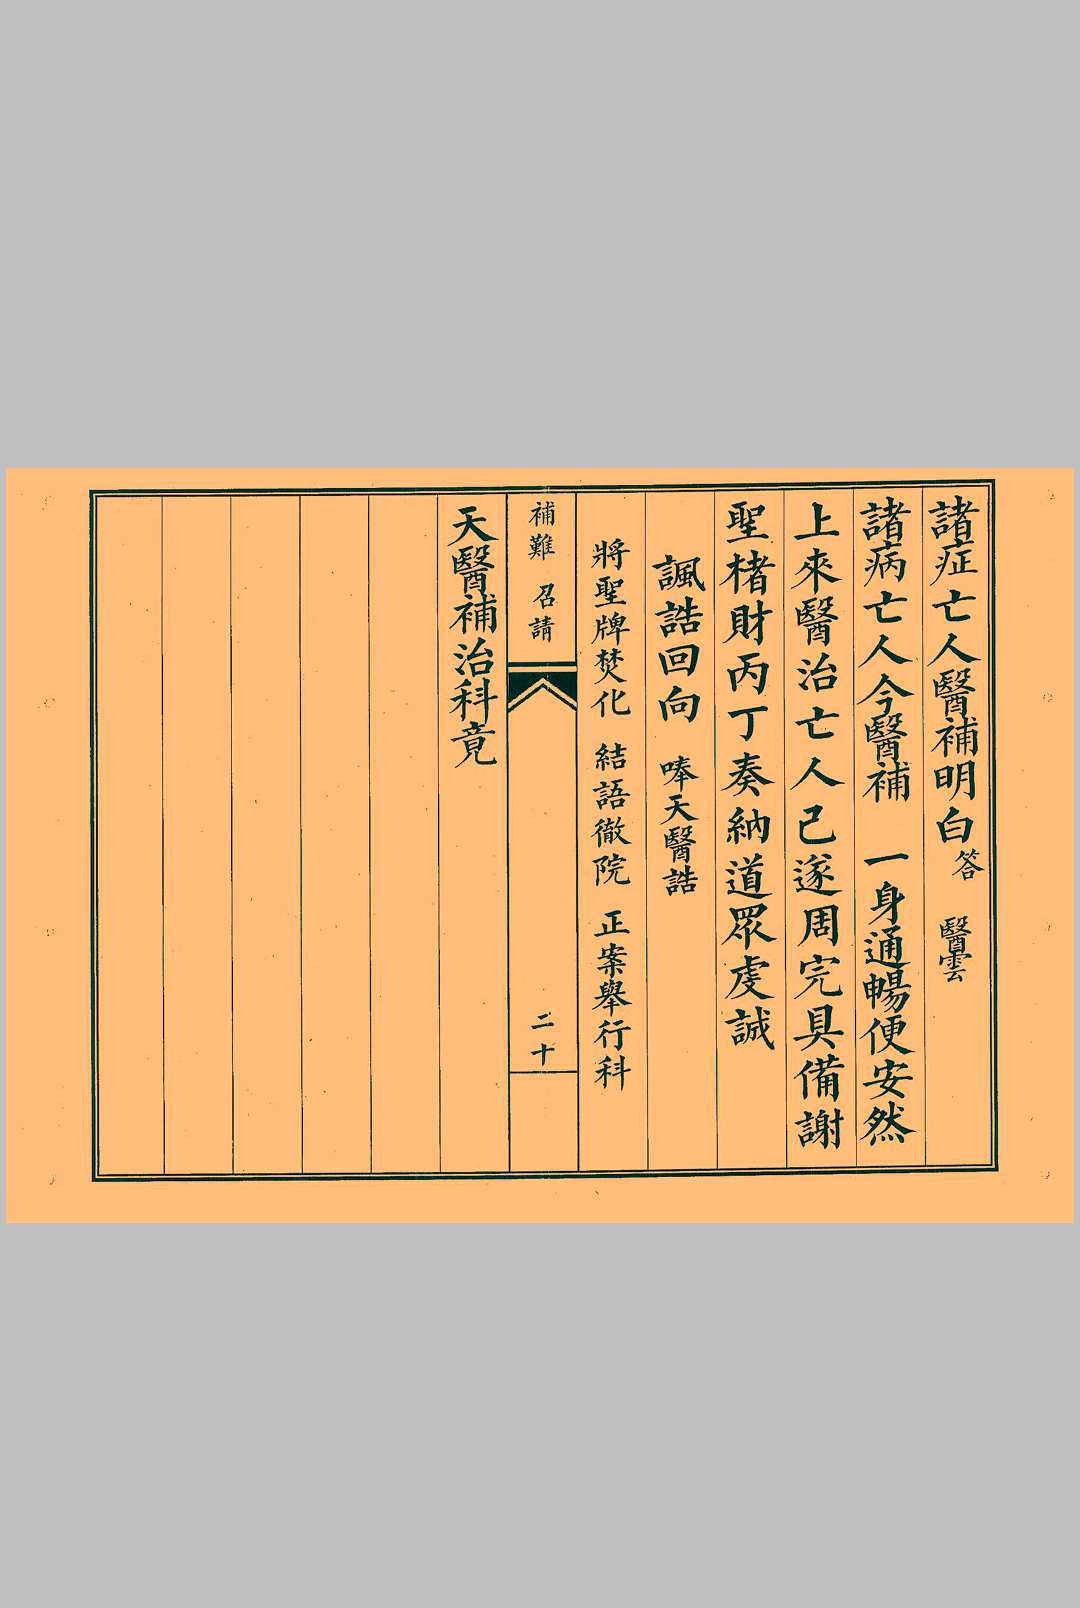 諸症亡人醫補明白答 醫雲
諸病亡人今醫補 一身通暢便安然
上來醫治亡人已遂周完具備謝
聖楮財丙丁奏納道眾虔誠
諷誥回向 唪天醫誥
將聖牌焚化 結語徹院 正案舉行科
補難 召請 二十
天醫補治科竟